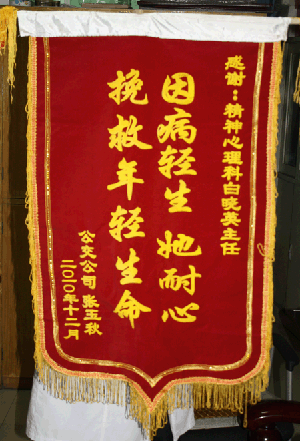 感谢：精神心理科白晓英主任
因病轻生 她耐心
挽救年轻生命
公交公司 张玉秋
二〇一〇年十二月